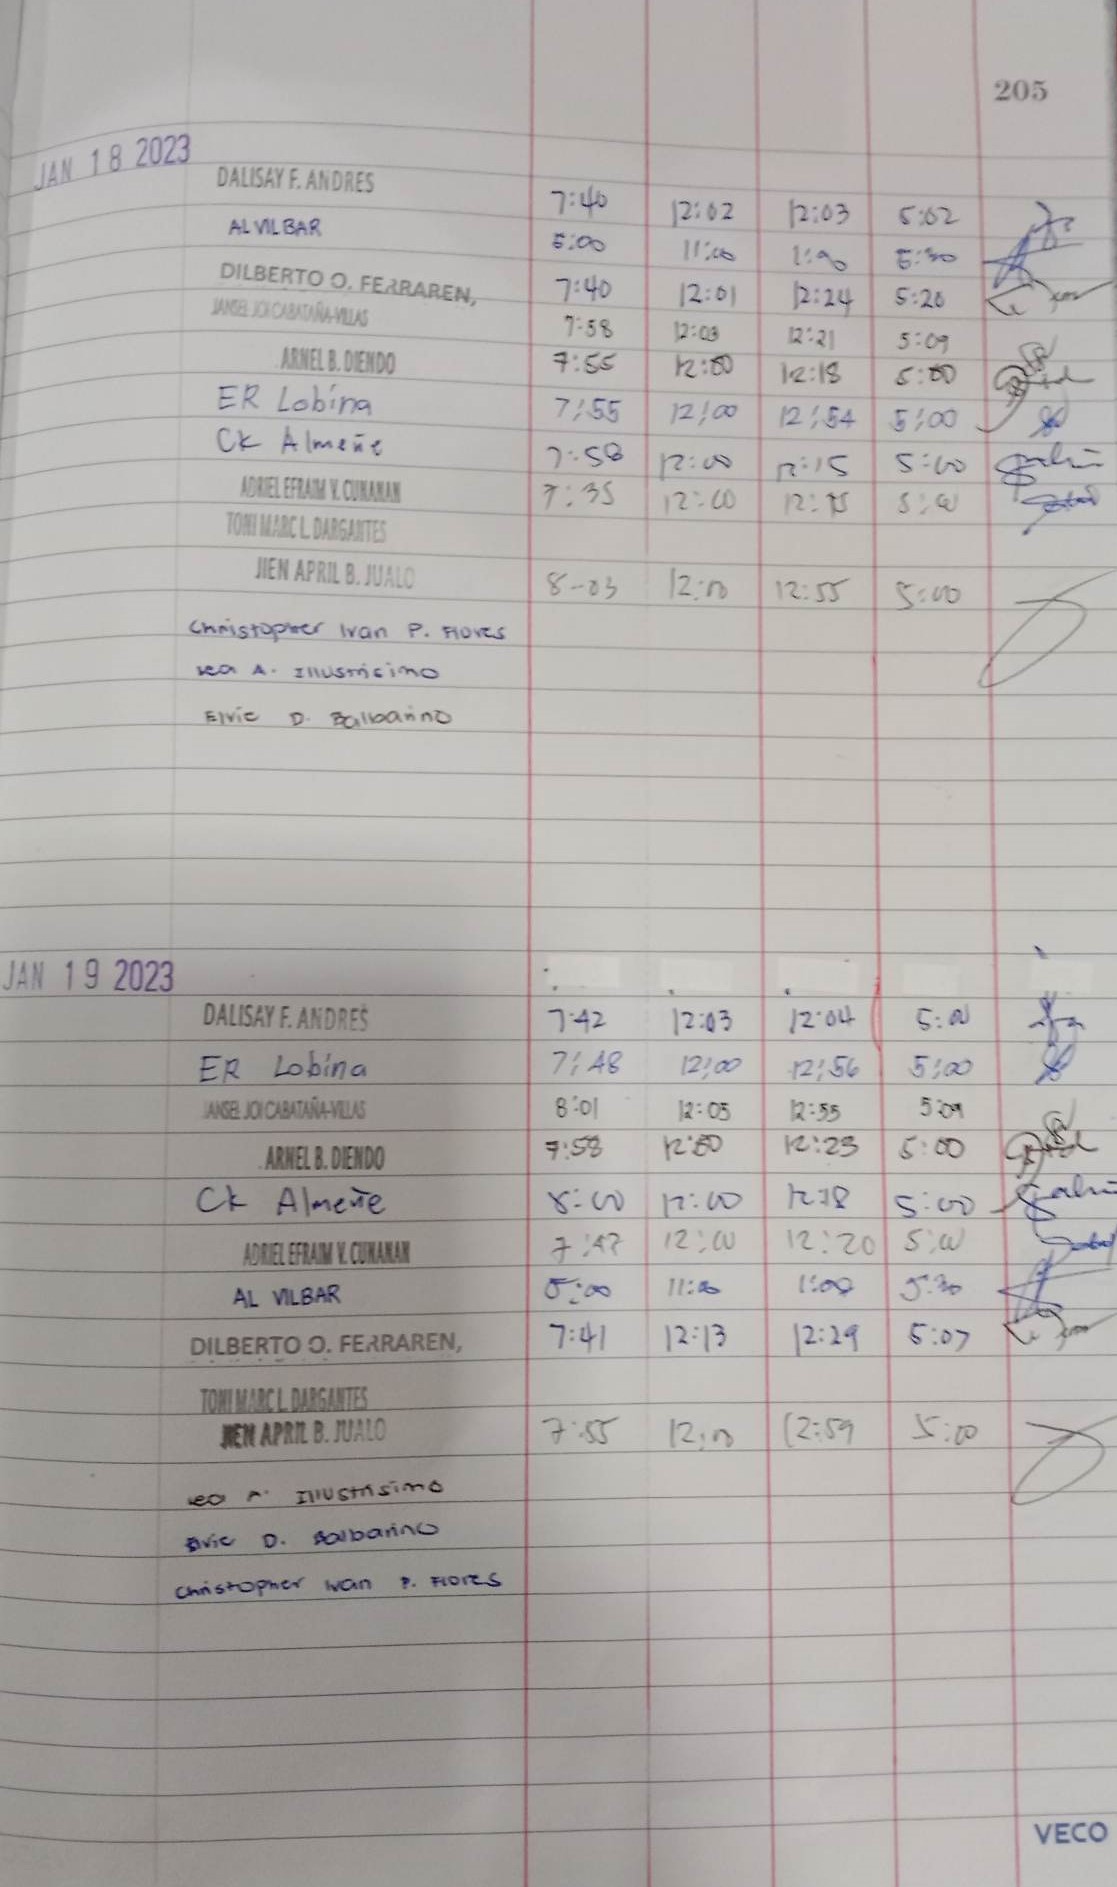 205
JAN 18 2023
DALISAY F. ANDRES 7:40 12:02 12:03 5:02
AL VILBAR 5:00 11:00 1:00 5:30
DILBERTO O. FERRAREN, 7:40 12:01 12:24 5:20
JANSEL JOI CABATAÑA-VILLAS 7:58 12:03 12:21 5:09
ARNEL B. DIENDO 7:55 12:00 12:18 5:00
ER Lobina 7:55 12:00 12:54 5:00
CK Almeñe 7:58 12:00 12:15 5:00
ADRIEL EFRAIM V. CUNANAN 7:35 12:00 5:00
TONI MARC L. DARGANTES
JIEN APRIL B. JUALO 8-03 12:00 12:55 5:00
Christopher Ivan P. Flores
A. Illustrisimo
Elvie D. Balbarino
JAN 19 2023
DALISAY F. ANDRES 7:42 12:03 12:04 5:00
ER Lobina 7:48 12:00 12:56 5:00
JANSEL JOI CABATAÑA-VILLAS 8:01 12:05 12:55 5:09
ARNEL B. DIENDO 7:58 12:00 12:23 5:00
CK Almeñe 8:00 12:00 12:18 5:00
ADRIEL EFRAIM V. CUNANAN 7:47 12:00 12:20 5:00
AL VILBAR 5:00 11:00 1:00 5:30
DILBERTO O. FERRAREN, 7:41 12:13 12:29 5:07
TONI MARC L. DARGANTES
JIEN APRIL B. JUALO 7:55 12:00 12:59 5:00
A. Illustrisimo
Elvie D. Balbarino
Christopher Ivan P. Flores
VECO